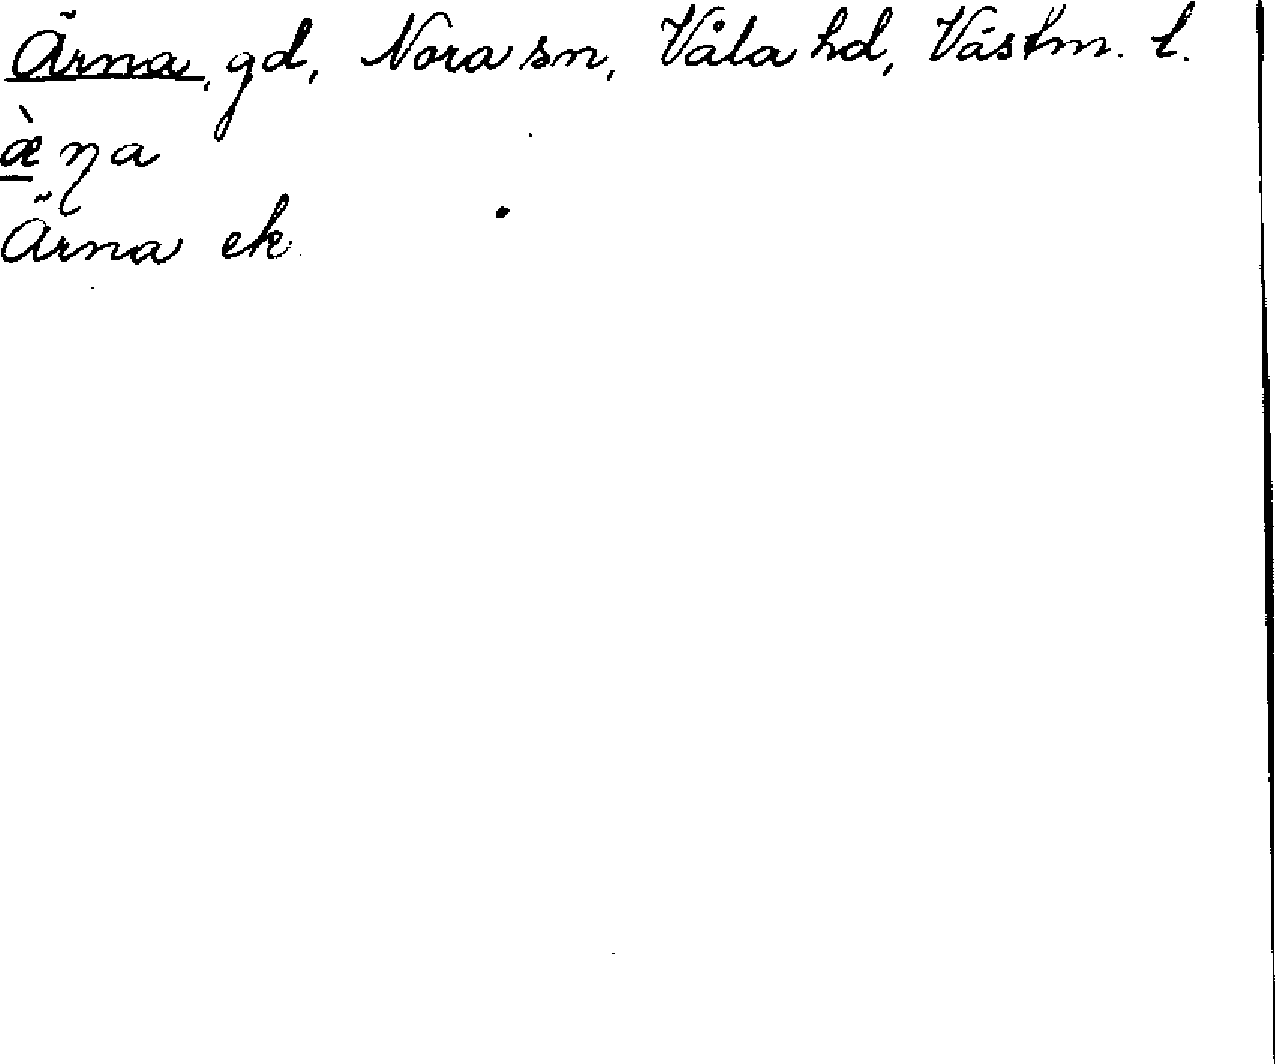 Ärna, gd, Nora sn, Våla hd, Västm. l.
æ̀ɳa
Ärna ek